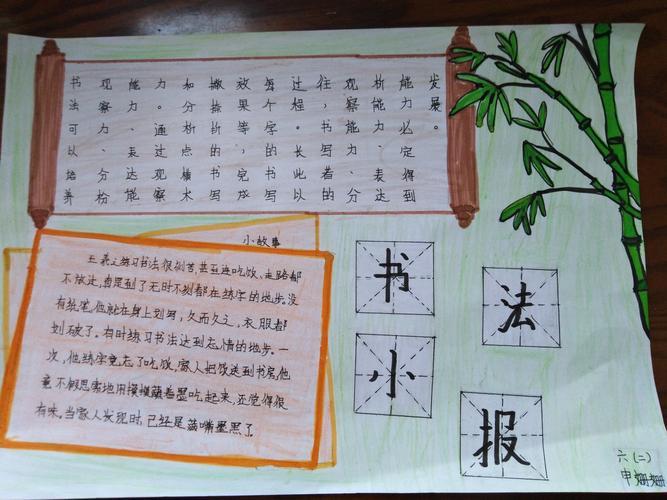 书法可以培养
现察力、分粉
能力、表达能
力。通过观察
如分析点横术
撇捺折的书写
放果等，完成
每个字的书写
过程。长此以
往，书写者的
观察能力、分
析能力、表达
能力必定得到
发展。
小故事
王羲之练习书法很刻苦，甚至连吃饭、走路都
不放过，真是到了无时不刻都在练字的地步。没
有纸笔，他就在身上划写，久而久之，衣服都
划破了。有时练习书法达到忘情的地步。一
次，他练字竟忘了吃饭，家人把饭送到书房，他
竟不假思索地用馍馍蘸着墨吃起来，还觉得很
有味。当家人发现时，已经是满嘴墨黑了。
书
法
小
报
六(二)
申姗姗